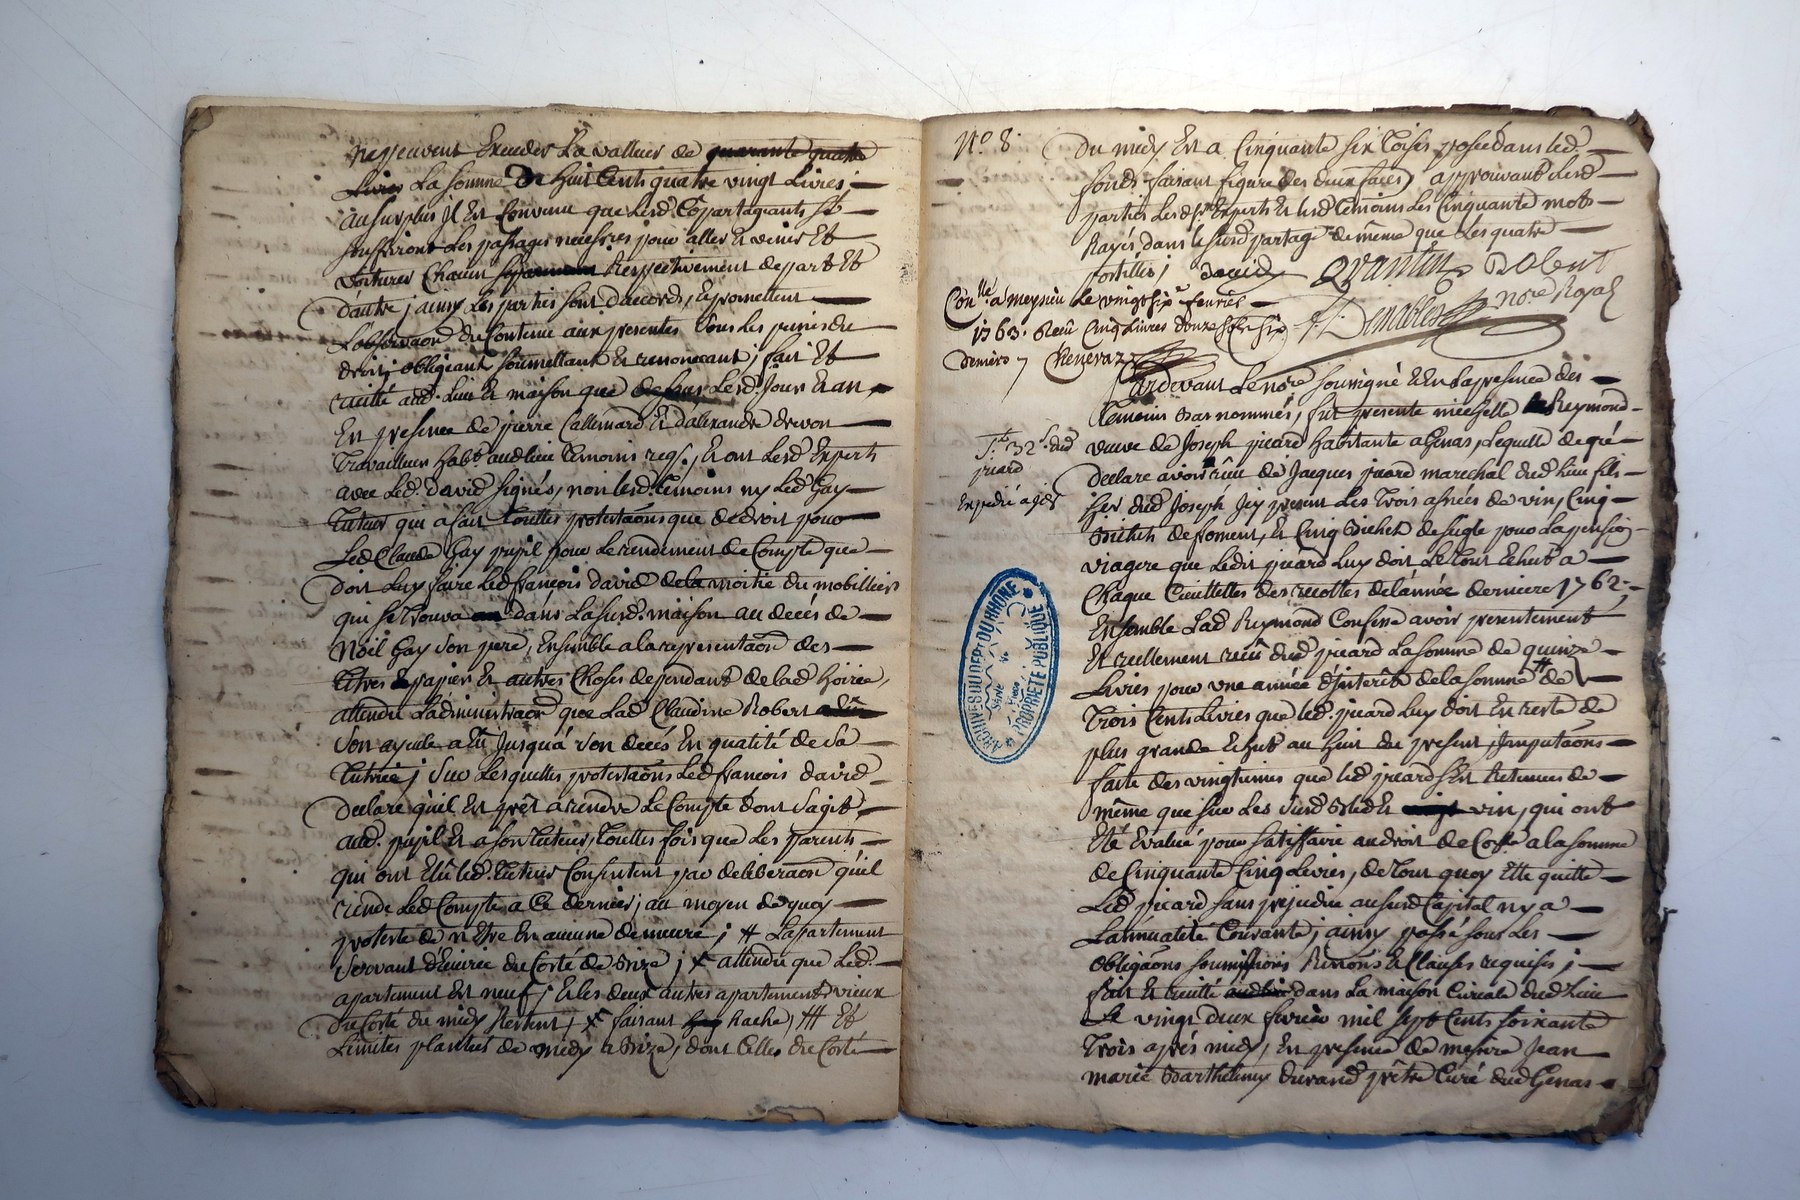 ne peuvent Exceder La valleur de quarante quatre
Livres La Somme De huit Cents quatre vingt Livres ;
au surplus jl Est Convenu que Lesd. Copartageants Se
Souffriront Les passages necessres pour aller Et venir Et
voiturer Chacun Respectivement de part Et
d'autre ; ainsy Les parties Sont d'accord, Et promettent
L'observaon du Contenu aux presentes Sous Les peines de
droit, obligeant Soumettant Et renoncant ; fait Et
recitté aud. Lieu Et maison que Lesd. Jour Et an
En presence de pierre Callemard Et d'alexandre drevon
Travailleurs Habts audlieu temoins reqs. Et ont Lesd Experts
avec Led. David Signés, non Lesd. temoins ny Led Gay
Tuteur qui a fait Touttes protestaons que de droit pour
Led Claude Gay pupil pour Le rendement de Compte que
Doit Luy faire Led francois David de la moitié du mobillier
qui Se trouva dans La Susd. maison au decés de
Noël Gay Son pere, Ensemble a la representaon des
titres papiers Et autres Choses dependant de lad Hoirie,
attendu L'administraon que Lad Claudine Robert
Son ayeule a Eû Jusqu'à Son decés En qualité de Sa
Tutrice ; Sur Lesquelles protestaons Led francois David
Declare qu'il Est prêt a rendre Le Compte dont S'agit
aud. pupil Et a Son Tuteur, Touttes fois que Les parents
qui ont Elû led. Tuteur Consentent par deliberaon qu'il
rende Led Compte a Ce dernier ; au moyen de quoy
proteste de n'Etre En aucune demeure ; # L'appartement
Servant d'Ecurie du Corté de Brize ; x attendu que Led.
apartement Est neuf ; Et les deux autres apartements vieux
Du Corté du midy Restent ; x faisant Hache, ## Et
Limites plantées de midy a Brize, dont Celles du Corté
N° 8
Du midy Est a Cinquante Six Toises posée dans led.
fonds faisant figure des deux faces) approuvant Lesd
parties Lesds Experts Et Lesd temoins Les Cinquante mots
Rayés dans le Susd partage de même que Les quatre
postilles ; David Quantin Robert
Conllé a meyzieu Le vingt Six fevrier
1763. Receu Cinq Livres douze Sols Six
Deniers Cheneraz
nore Royal
Pardevant Le nore Soussigné Et En La presence des
temoins Bas nommés, fut presente Reymond
Tt 32s. dud
picard
Expedié
veuve de Joseph picard Habitante a Genas, Laquelle de gré
Declare avoir reçu de Jacques picard marechal dud Lieu fils
Her dud Joseph Jcy present Les Trois asnées de vin, Cinq
Bichets de froment, Et Cinq Bichet de Segle pour La pension
viagere que Ledit picard Luy doit Le tout Echut a
Chaque Cueillettes des recoltes de L'année derniere 1762 ;
Ensemble Lad Reymond Confesse avoir presentement
Et reellement reçu dud picard La Somme de quinze
Livres pour une année d'Interêt de la Somme de
Trois Cents Livres que led. picard Luy doit En reste de
plus grande Echut au Huit du present, Imputaons
faite des vingtiemes que led picard S'Est Retenues de
même que Sur Les Susd Bled Et vin, qui ont
Eté Evalué pour Satisfaire au droit de Conlle a la Somme
de Cinquante Cinq Livres, de Tout quoy Elle quitte
Led picard Sans prejudice au Susd Capital ny a
L'annualité Courante ; ainsy passé Sous Les
obligaons Soumissions Renons Et Clauses requises ;
fait Et recitté dans La maison Curiale dud Lieu
Le vingt deux fevrier mil Sept Cents Soixante
Trois aprés midy, En presence de messire Jean
marie Barthelemy Durand prêtre Curé dud Genas
ARCHIVES DU DEPT DU RHONE
PROPRIETE PUBLIQUE